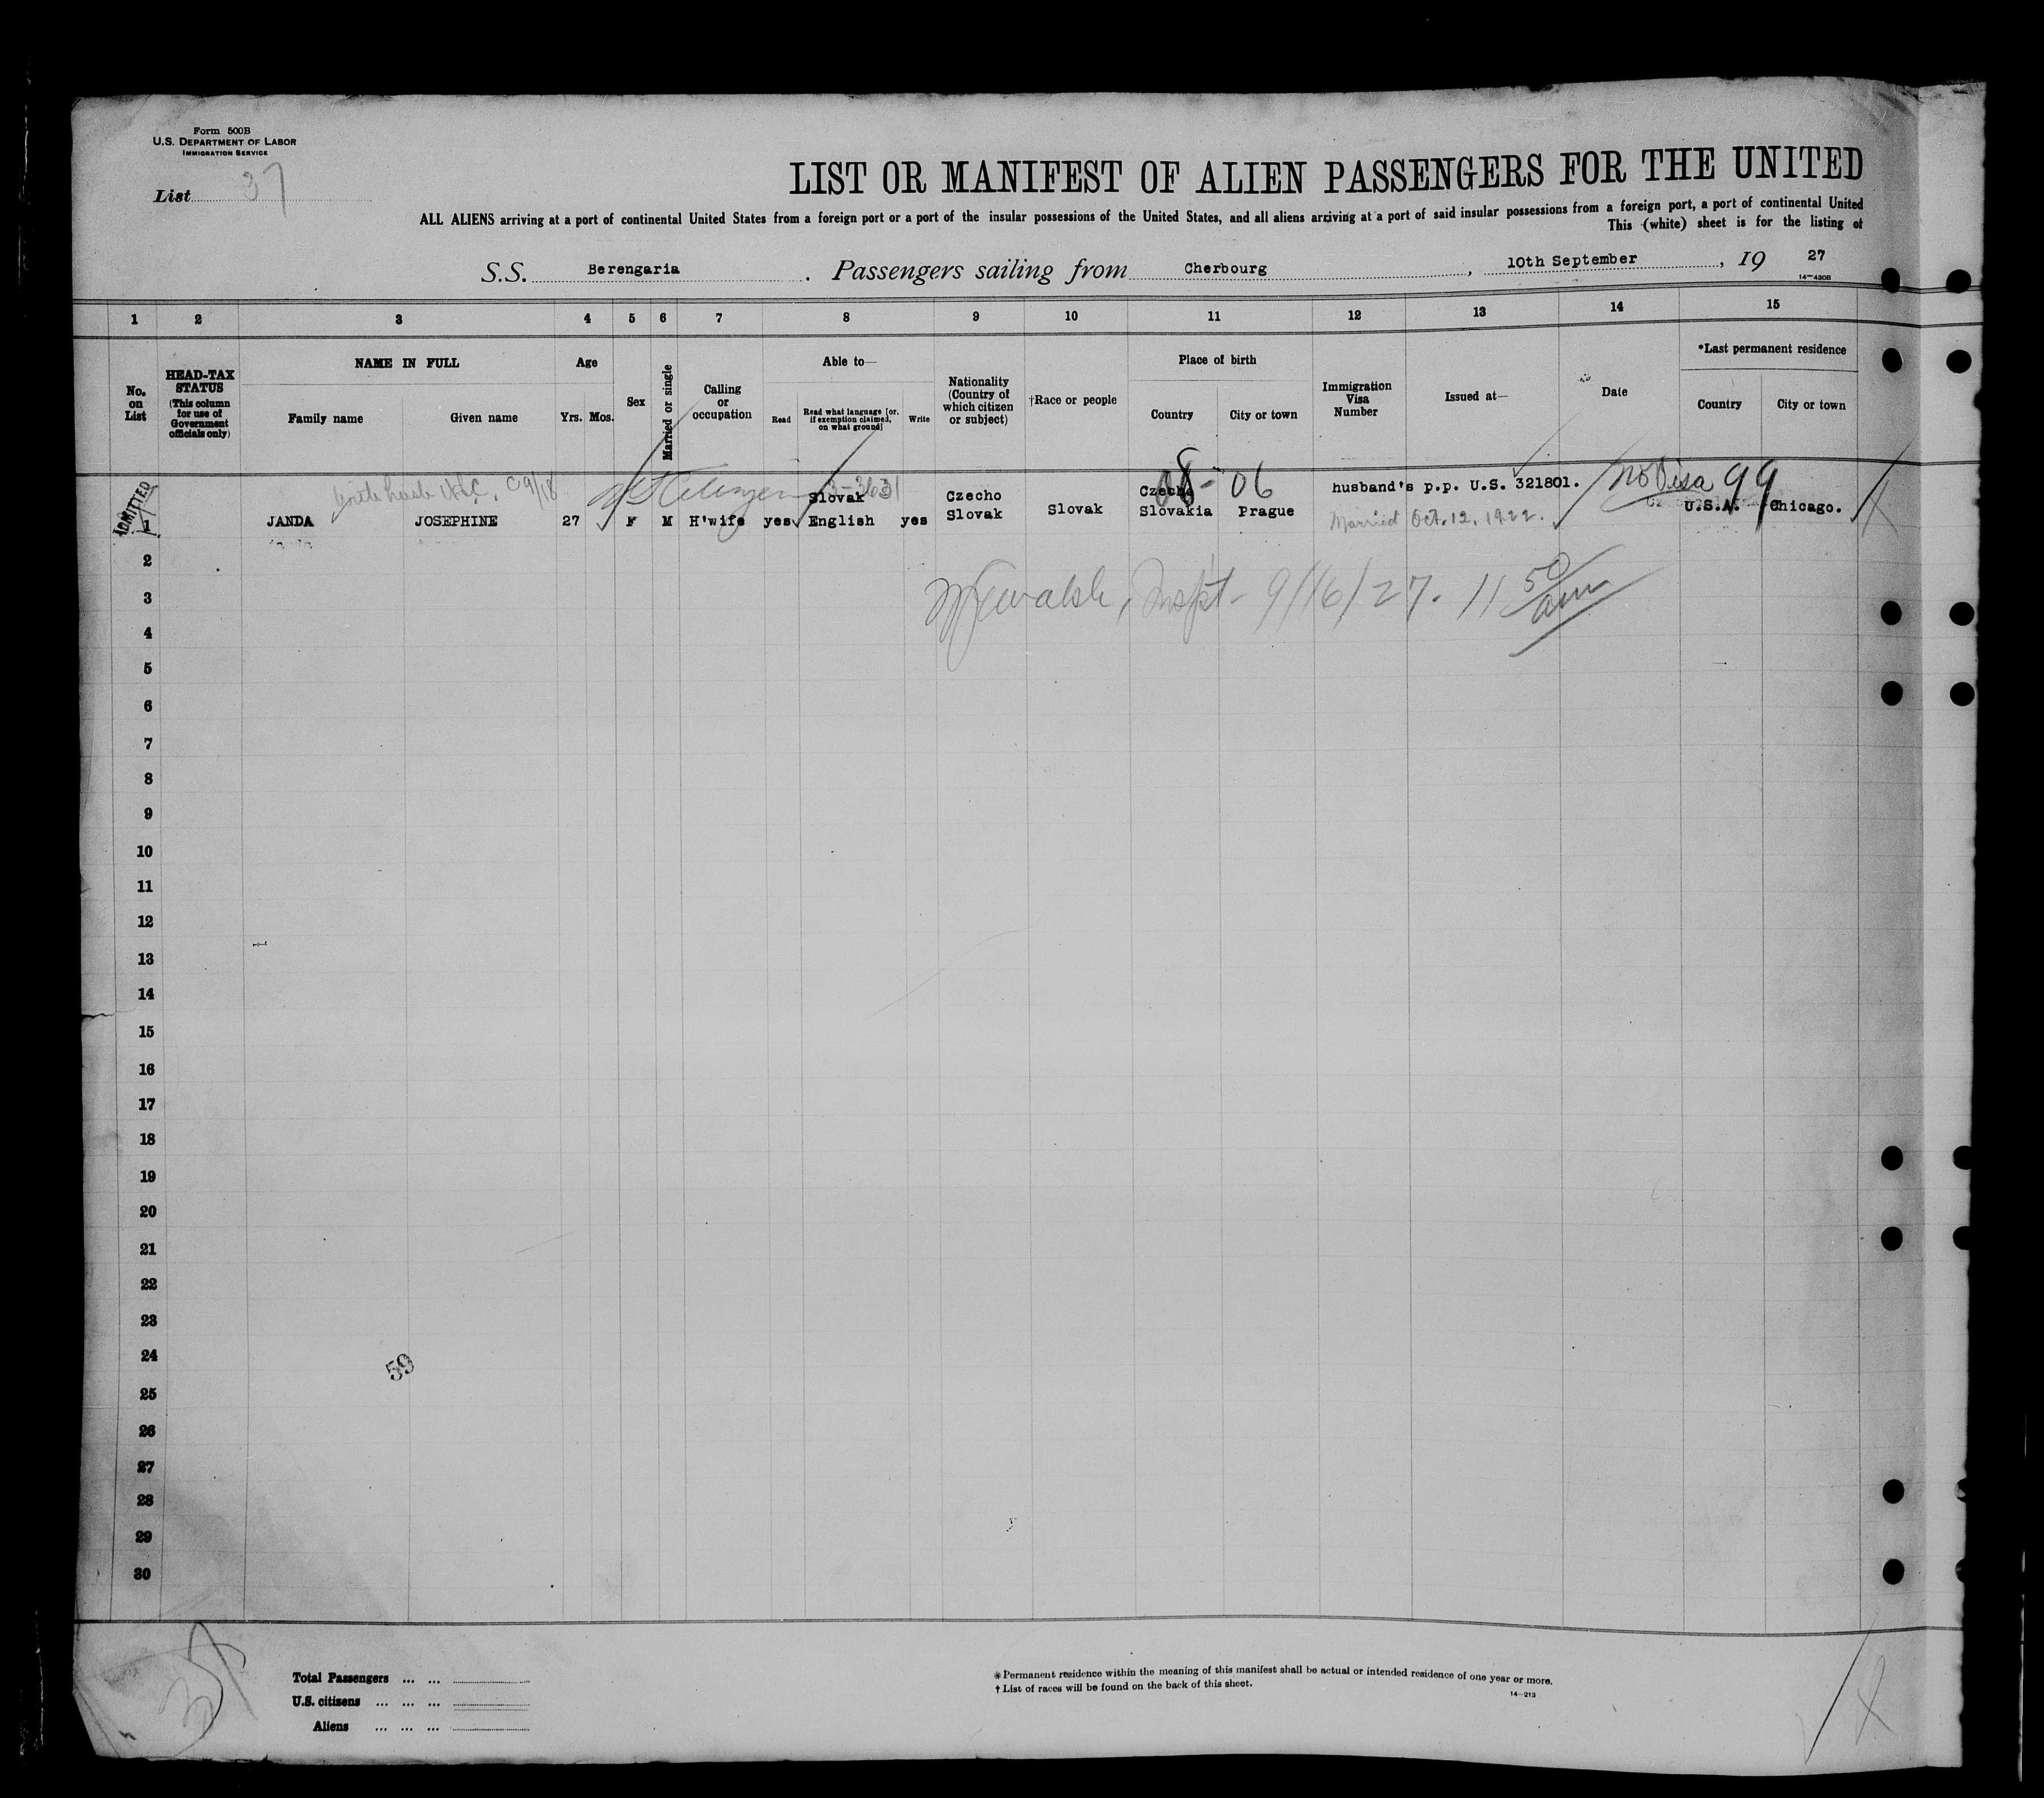 Form 500B
U.S. DEPARTMENT OF LABOR
IMMIGRATION SERVICE
List 37
LIST OR MANIFEST OF ALIEN PASSENGERS FOR THE UNITED
ALL ALIENS arriving at a port of continental United States from a foreign port or a port of the insular possessions of the United States, and all aliens arriving at a port of said insular possessions from a foreign port, a port of continental United
This (white) sheet is for the listing of
S.S. Berengaria . Passengers sailing from Cherbourg , 10th September , 19 27
14-430B
1 2 3 4 5 6 7 8 9 10 11 12 13 14 15
No. on List
HEAD-TAX STATUS
(This column for use of Government officials only)
NAME IN FULL
Family name Given name
Age
Yrs. Mos.
Sex
Married or single
Calling or occupation
Able to—
Read
Read what language [or, if exemption claimed, on what ground]
Write
Nationality (Country of which citizen or subject)
†Race or people
Place of birth
Country City or town
Immigration Visa Number
Issued at—
Date
*Last permanent residence
Country City or town
ADMITTED
08-06
No Visa 99
Slovak Czecho Czecho husband's p.p. U.S. 321801.
1 JANDA JOSEPHINE 27 F M H'wife yes English yes Slovak Slovak Slovakia Prague U.S.A. Chicago.
Married Oct. 12. 1922.
Walsh, Inspt- 9/16/27. 11 50 am
2
3
4
5
6
7
8
9
10
11
12
13
14
15
16
17
18
19
20
21
22
23
24
25
26
27
28
29
30
59
Total Passengers ... ...
U.S. citizens ... ... ...
Aliens ... ... ...
*Permanent residence within the meaning of this manifest shall be actual or intended residence of one year or more.
† List of races will be found on the back of this sheet.
14-213